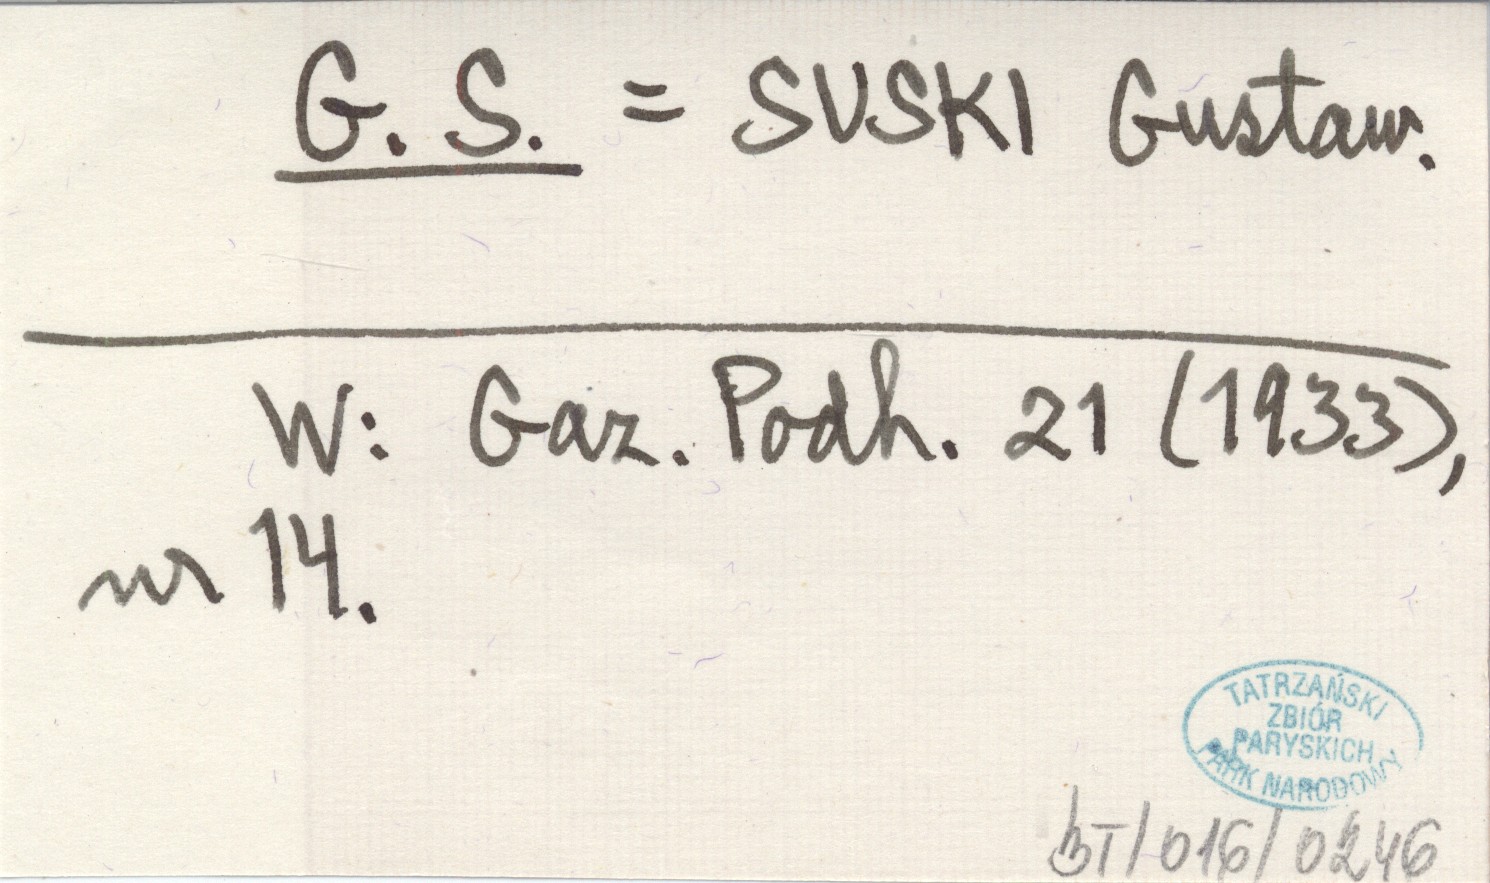 G. S. = SUSKI Gustaw.
W: Gaz. Podh. 21 (1933),
nr 14.
TATRZAŃSKI
ZBIÓR
PARYSKICH
PARK NARODOWY
BT/016/0246